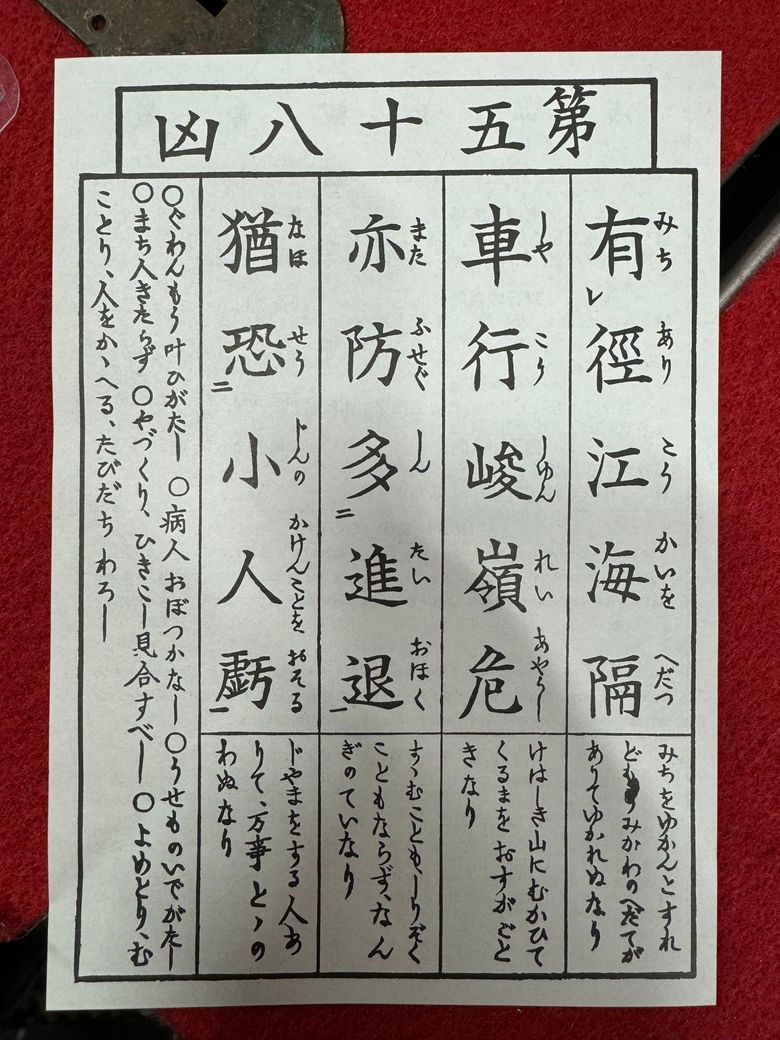 第五十八凶
みち あり こう かいを へだつ
有レ徑江海隔
みちをゆかんとすれ
どもうみかわのへだてが
ありてゆかれぬなり
しや こう しゆん れい あやうし
車行峻嶺危
けはしき山にむかひて
くるまをおすがごと
きなり
また ふせぐ しん たい おほく
亦防多二進退一
すゝむこともしりぞく
こともならず、なん
ぎのていなり
なほ せう じんの かけんことを おそる
猶恐二小人虧一
じやまをする人あ
りて、万事とゝの
わぬなり
○ぐわんもう叶ひがたし ○病人おぼつかなし ○うせものいでがたし
○まち人きたらず ○やづくり、ひきこし見合すべし ○よめとり、む
ことり、人をかゝへる、たびだちわろし